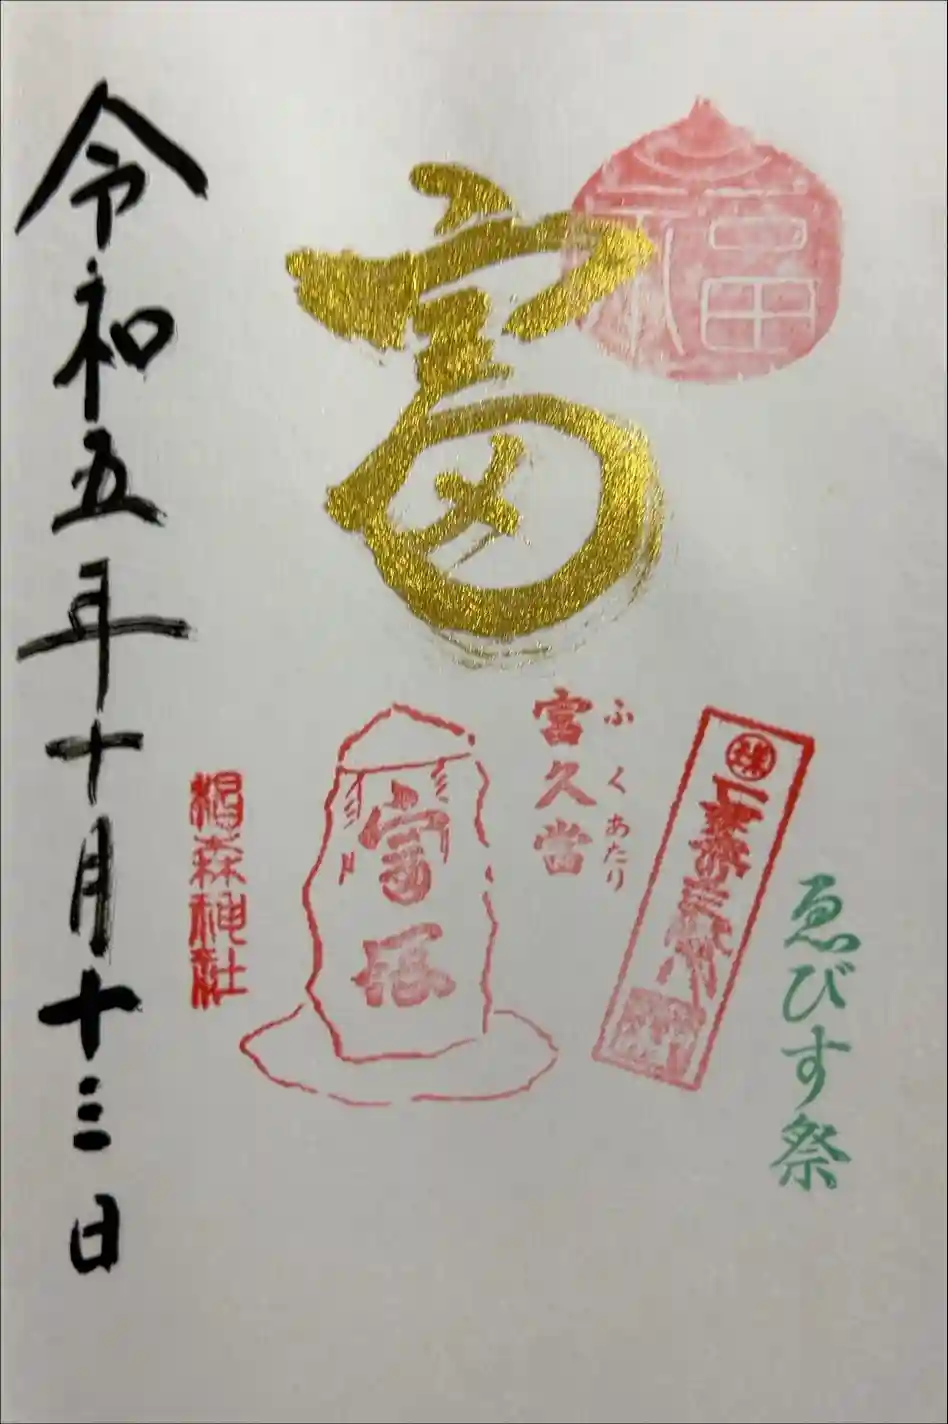 ゑびす祭
福
富
ふくあたり
富久當
富塚
椙森神社
令和五年十月十三日